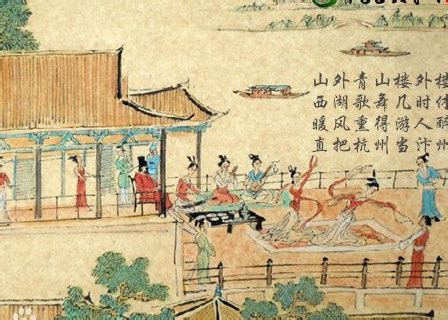 山外青山楼外楼
西湖歌舞几时休
暖风熏得游人醉
直把杭州当汴州